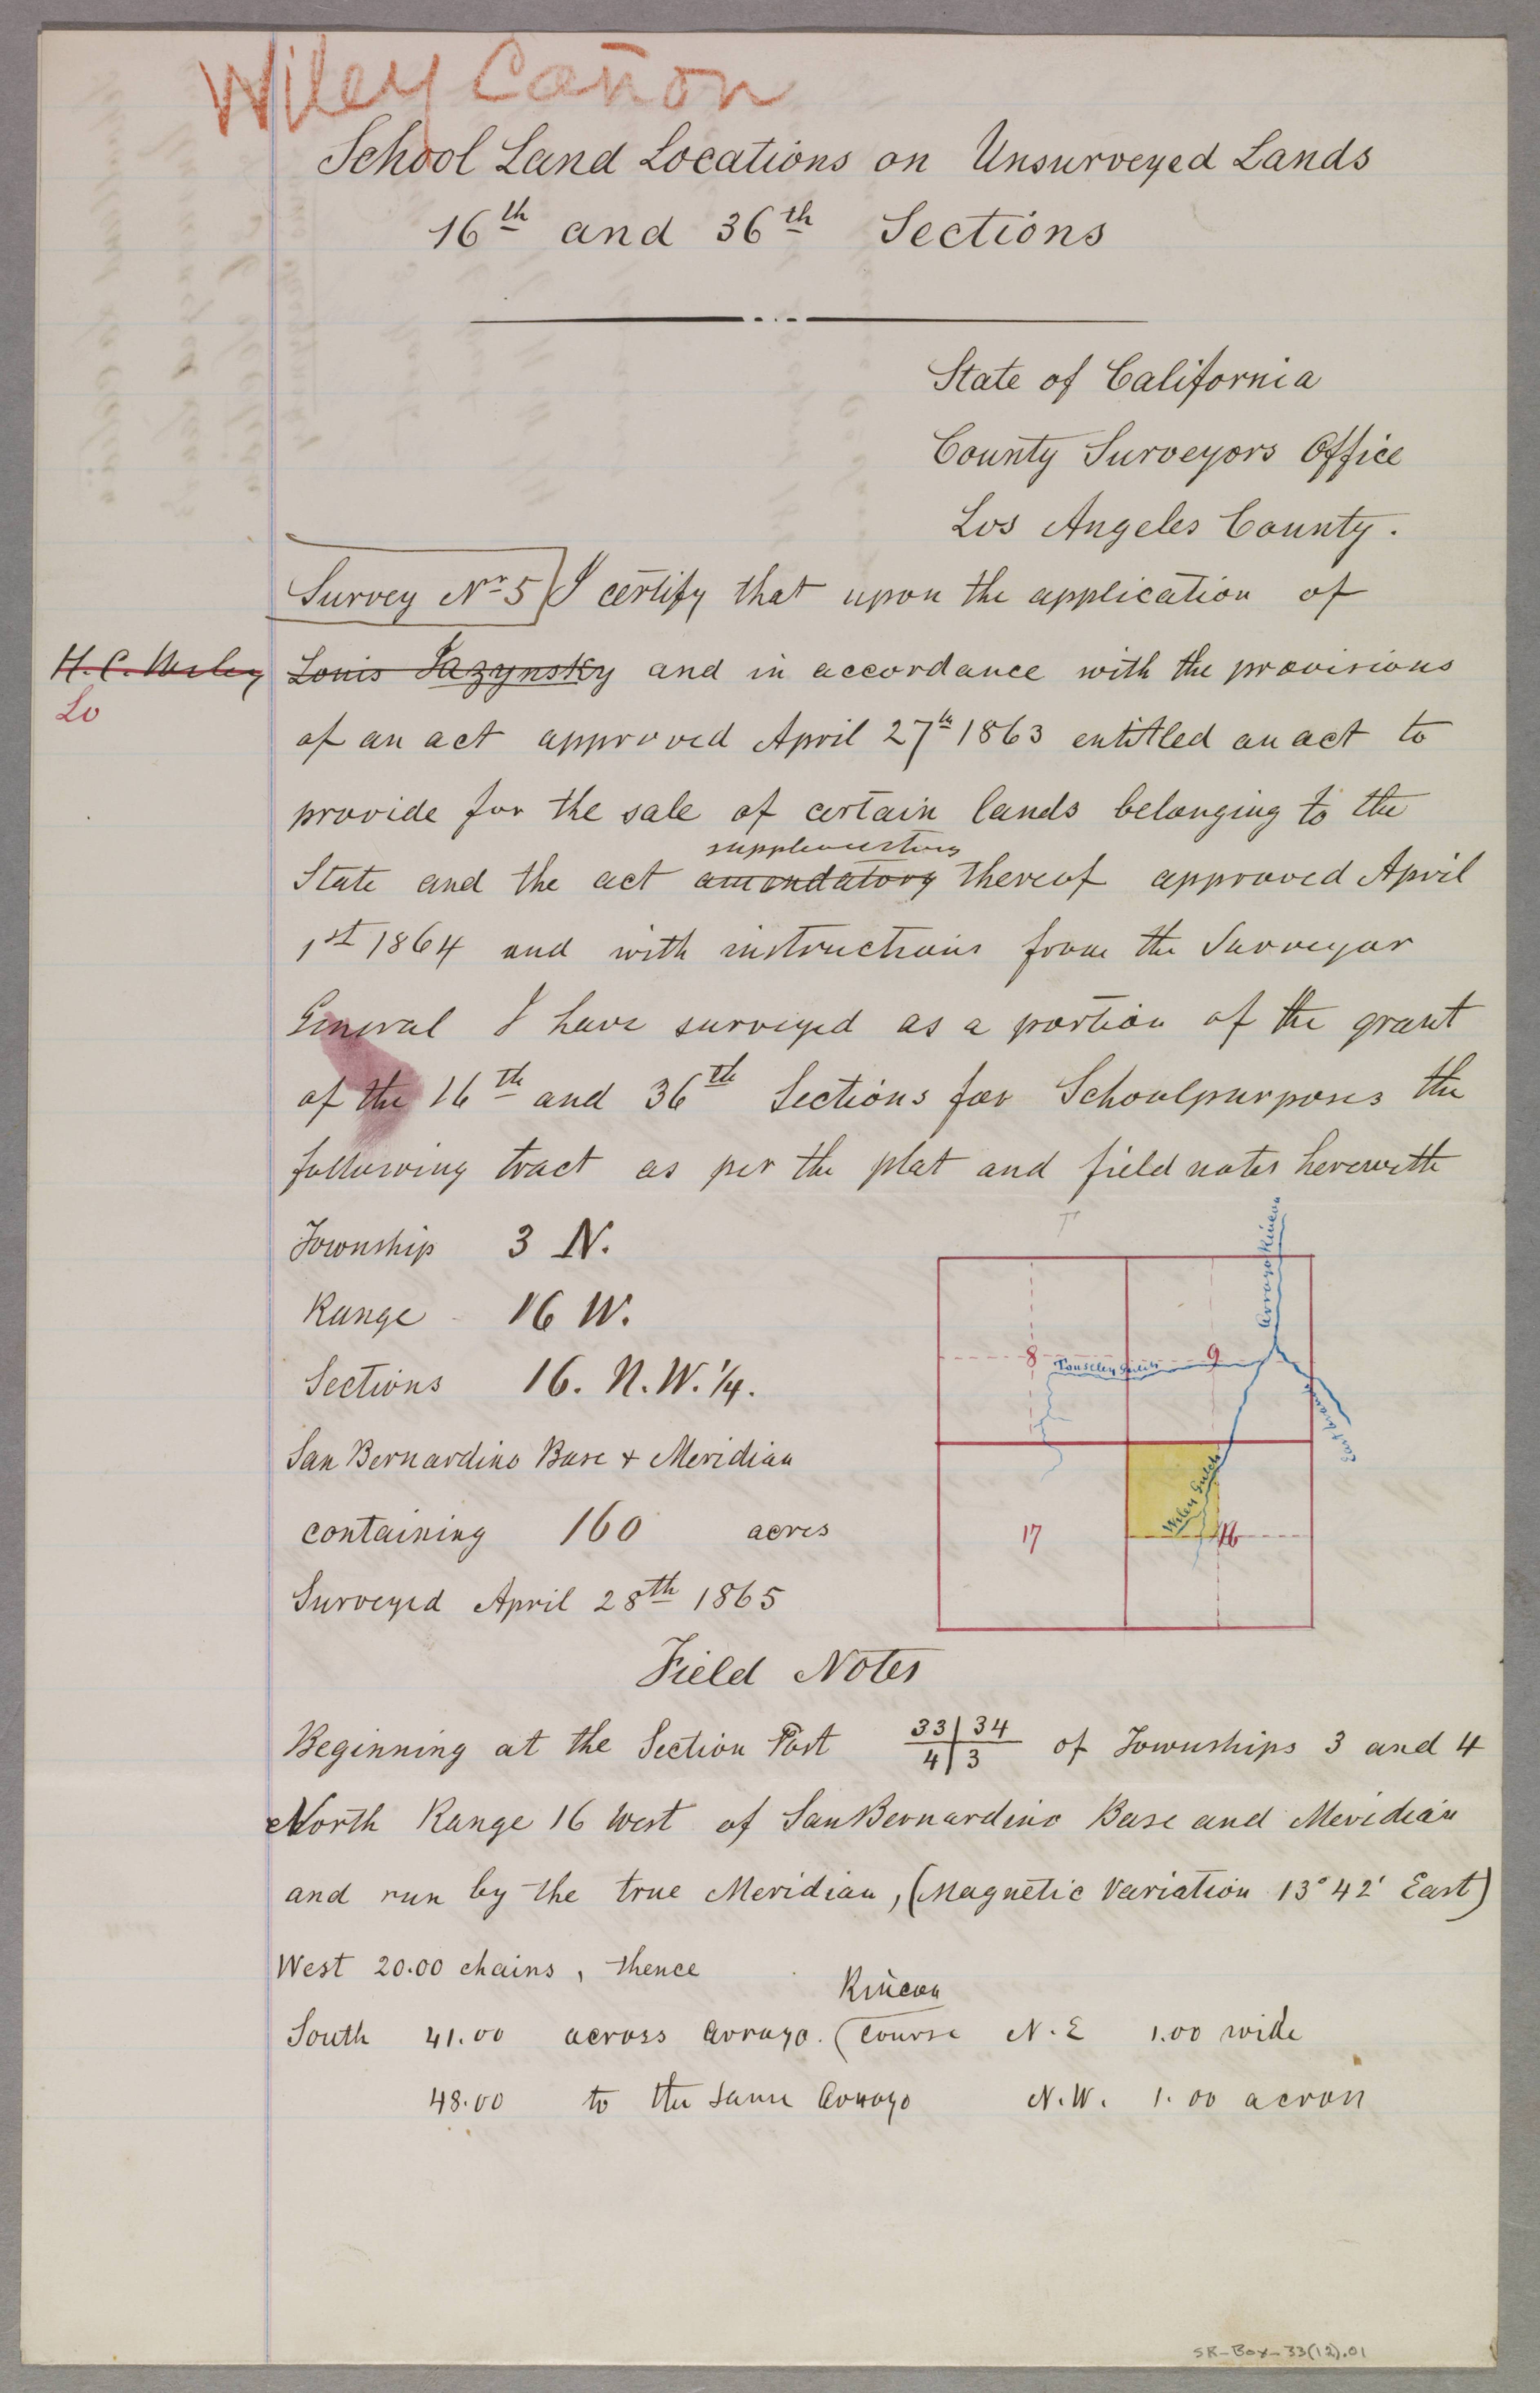 Wiley Cañon
School Land Locations on Unsurveyed Lands
16th and 36th Sections
State of California
County Surveyors Office
Los Angeles County.
Survey Nr 5 I certify that upon the application of
H. C. Wiley Louis Jazynsky and in accordance with the provisions
Lo
of an act approved April 27th 1863 entitled an act to
provide for the sale of certain lands belonging to the
supplementary
State and the act amendatory thereof approved April
1st 1864 and with instructions from the Surveyor
General I have surveyed as a portion of the grant
of the 16th and 36th Sections for Schoolpurposes the
following tract as per the plat and field notes herewith
Township 3 N.
Range 16 W.
Sections 16. N.W. 1/4.
San Bernardino Base + Meridian
containing 160 acres
Surveyed April 28th 1865
T
Arroyo Rincon
8 Touseley Gulch 9
East branch
Wiley Gulch
17 16
Field Notes
Beginning at the Section Post 33|34 of Townships 3 and 4
4|3
North Range 16 West of San Bernardino Base and Meridian
and run by the true Meridian, (Magnetic Variation 13° 42' East)
West 20.00 chains, thence
Rincon
South 41.00 across Arroyo. (Course N.E 1.00 wide
48.00 to the same Arroyo N.W. 1.00 across
SR-Box-33(12).01